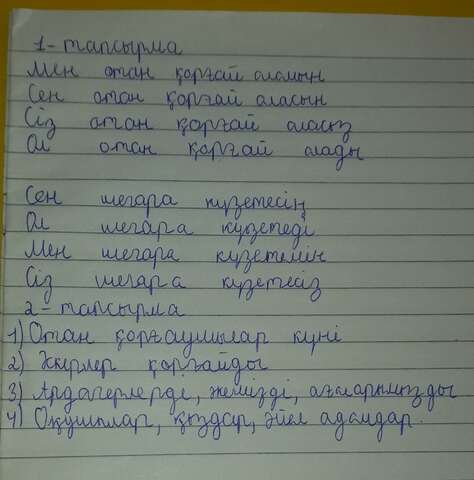 1-тапсырма
Мен отан қорғай аламын
Сен отан қорғай аласын
Сіз отан қорғай аласыз
Ол отан қорғай алады
Сен шегара күзетесің
Ол шегара күзетеді
Мен шегара күзетемін
Сіз шегара күзетесіз
2-тапсырма
1) Отан қорғаушылар күні
2) Әскерлер қорғайды
3) Ардагерлерді, әкемізді, ағаларымызды
4) Оқушылар, қыздар, әйел адамдар.